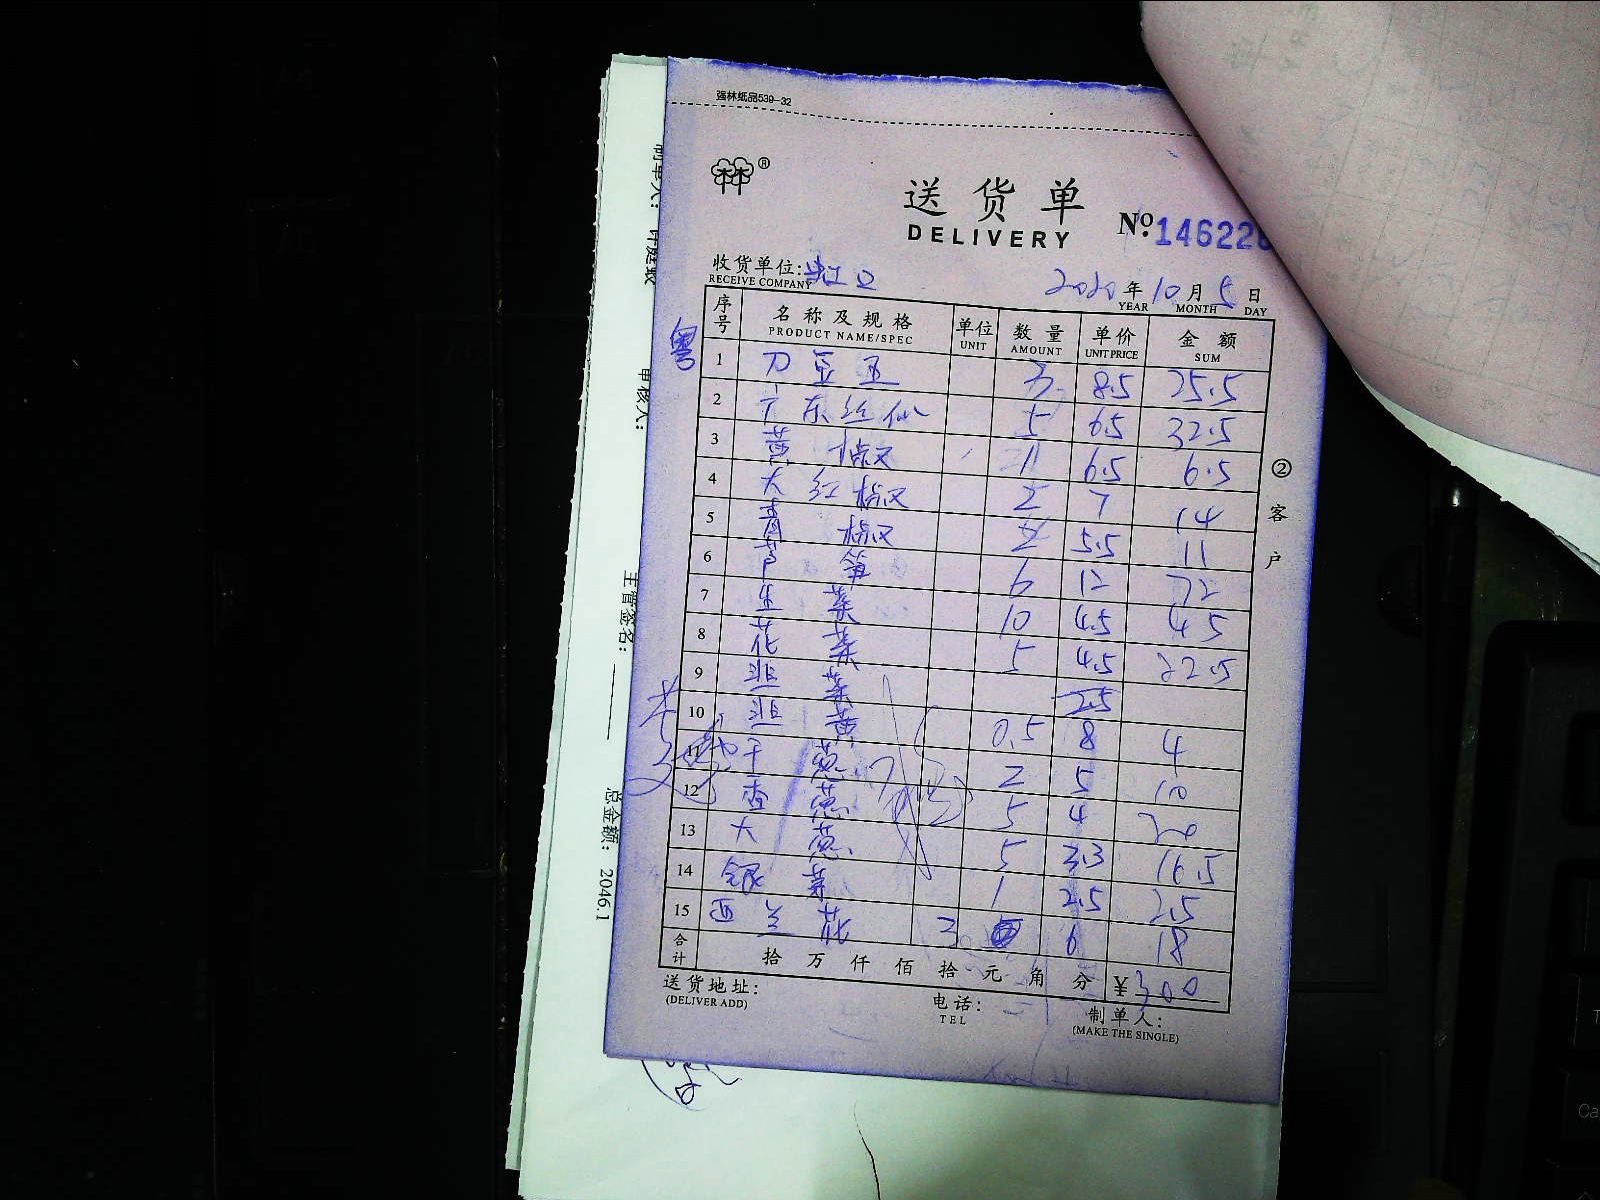 强林纸品539-32
®
送货单
DELIVERY
No.14622
收货单位:虹口 2020年10月5日
RECEIVE COMPANY YEAR MONTH DAY
粤
序号 名称及规格 单位 数量 单价 金额
PRODUCT NAME/SPEC UNIT AMOUNT UNIT PRICE SUM
1 刀豆 3 8.5 25.5
2 广东丝 5 6.5 32.5
3 黄椒 1 6.5 6.5
4 大红椒 2 7 14
5 青椒 2 5.5 11
6 芦笋 6 12 72
7 生菜 10 4.5 45
8 花菜 5 4.5 22.5
9 韭菜 2.5
10 韭黄 0.5 8 4
11 干葱 2 5 10
12 香葱 5 4 20
13 大葱 5 3.3 16.5
14 银芽 1 2.5 2.5
15 西兰花 3 6 18
合计 拾万仟佰拾元角分 ¥300
送货地址:
(DELIVER ADD)
电话:
TEL
制单人:
(MAKE THE SINGLE)
②客户
制单人:
审核人:
主管签名:
总金额: 2046.1